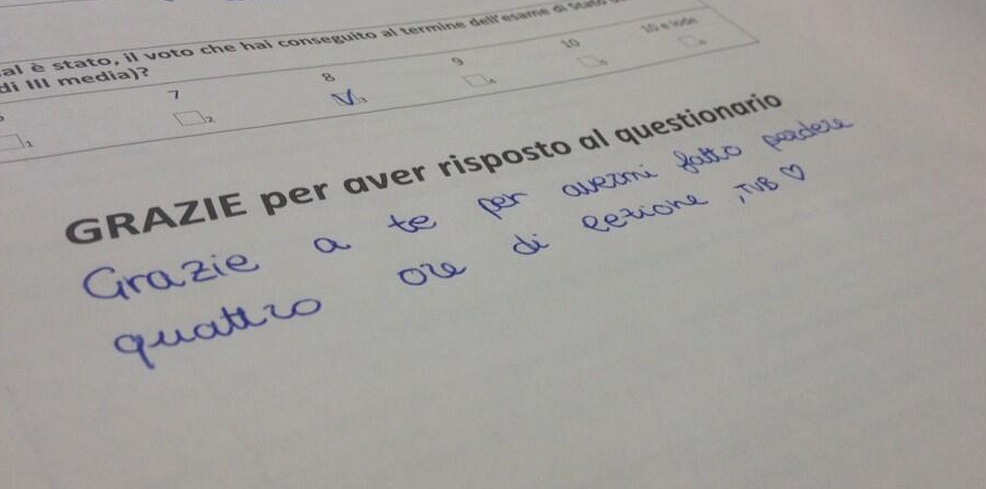 al è stato, il voto che hai conseguito al termine dell'esame di Stato
di III media)?
7 8 9 10 10 e lode
1 2 3 4 5 6
GRAZIE per aver risposto al questionario
Grazie a te per avermi fatto perdere
quattro ore di lezione, TVB ♡